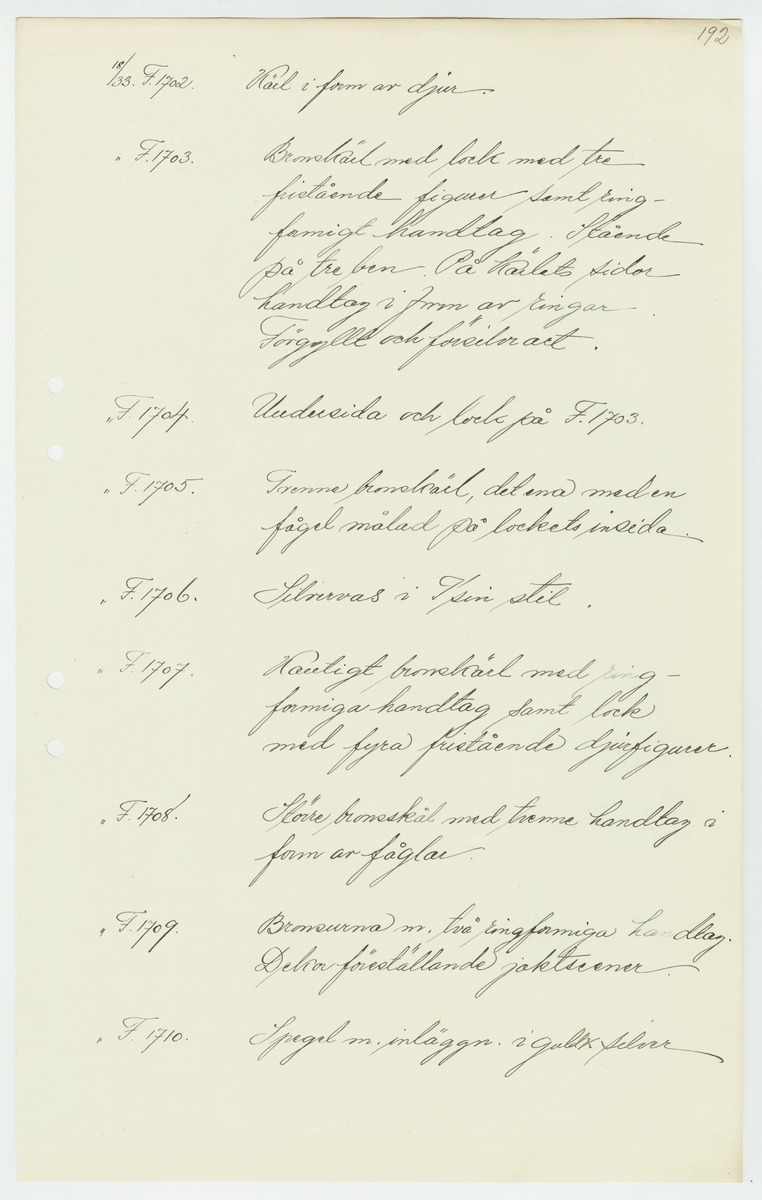 192
18/33. F.1702. Käil i form av djur.
" F.1703. Bronskäil med lock med tre
fristående figurer samt ring-
formigt handtag. Stående
på tre ben. På kärlets sidor
handtag i form av ringar.
Förgyllt och försilvract.
" F.1704. Undersida och lock på F.1703.
" F.1705. Trenne bronskäil, det ena med en
fågel målad på lockets insida.
" F.1706. Silvervas i Tsin stil.
" F.1707. Kantigt bronskärl med ring-
formiga handtag samt lock
med fyra fristående djurfigurer.
" F.1708. Större bronsskål med tvenne handtag i
form av fåglar.
" F.1709. Bronsurna m. två ringformiga handtag.
Dekor föreställande jaktscener.
" F.1710. Spegel m. inläggn. i guld k silver